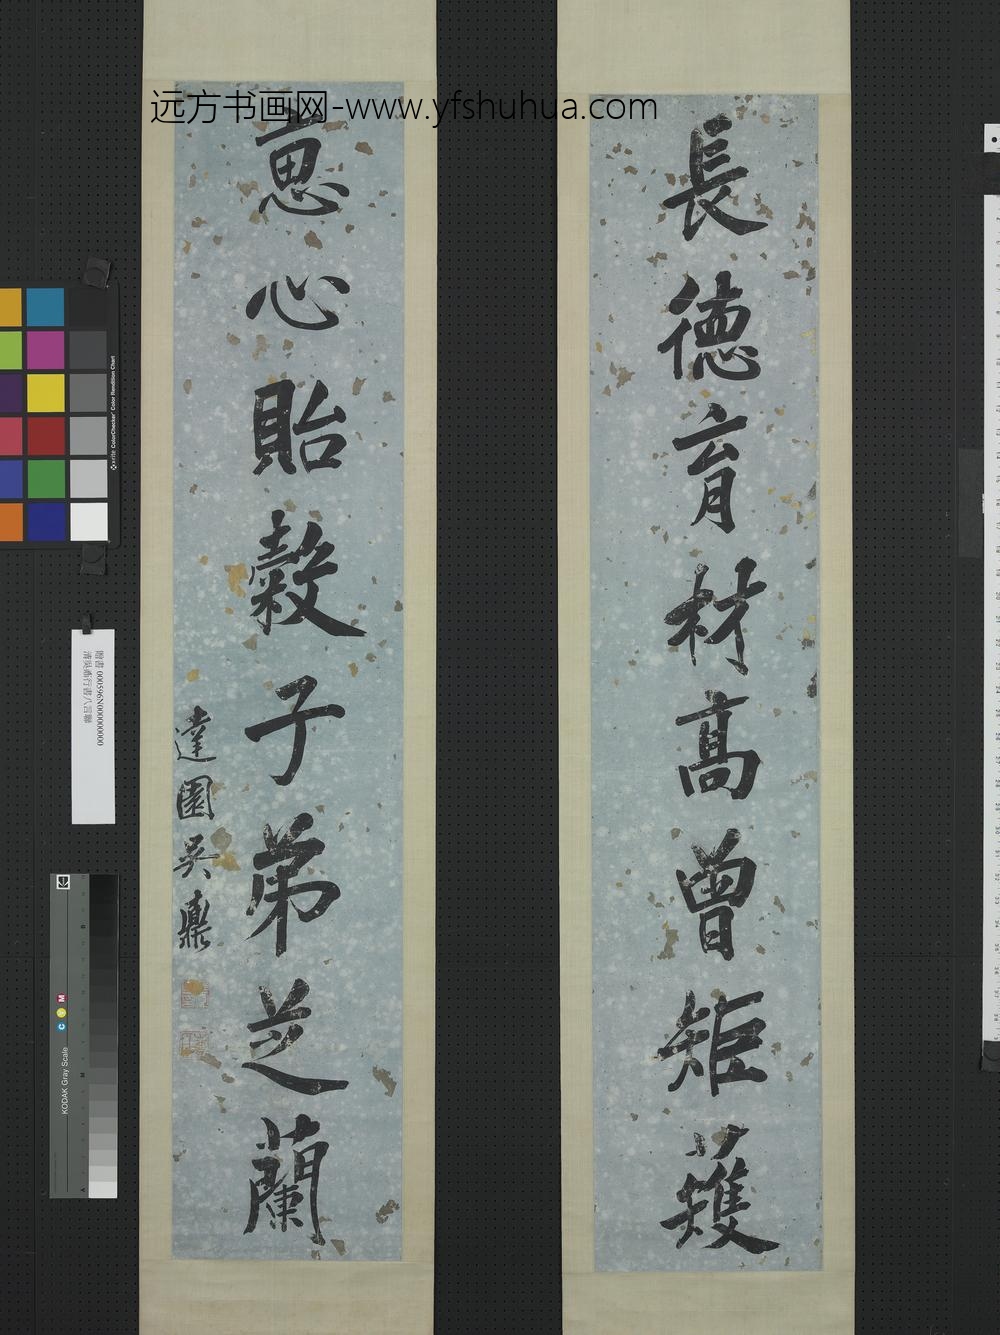 远方书画网-www.yfshuhua.com
長德育材高曾矩矱
惠心貽穀子弟芝蘭
達園吳鼒
贈書 000596N000000000
清吳鼒行書八言聯
x-rite ColorChecker Color Rendition Chart
KODAK Gray Scale
C Y M